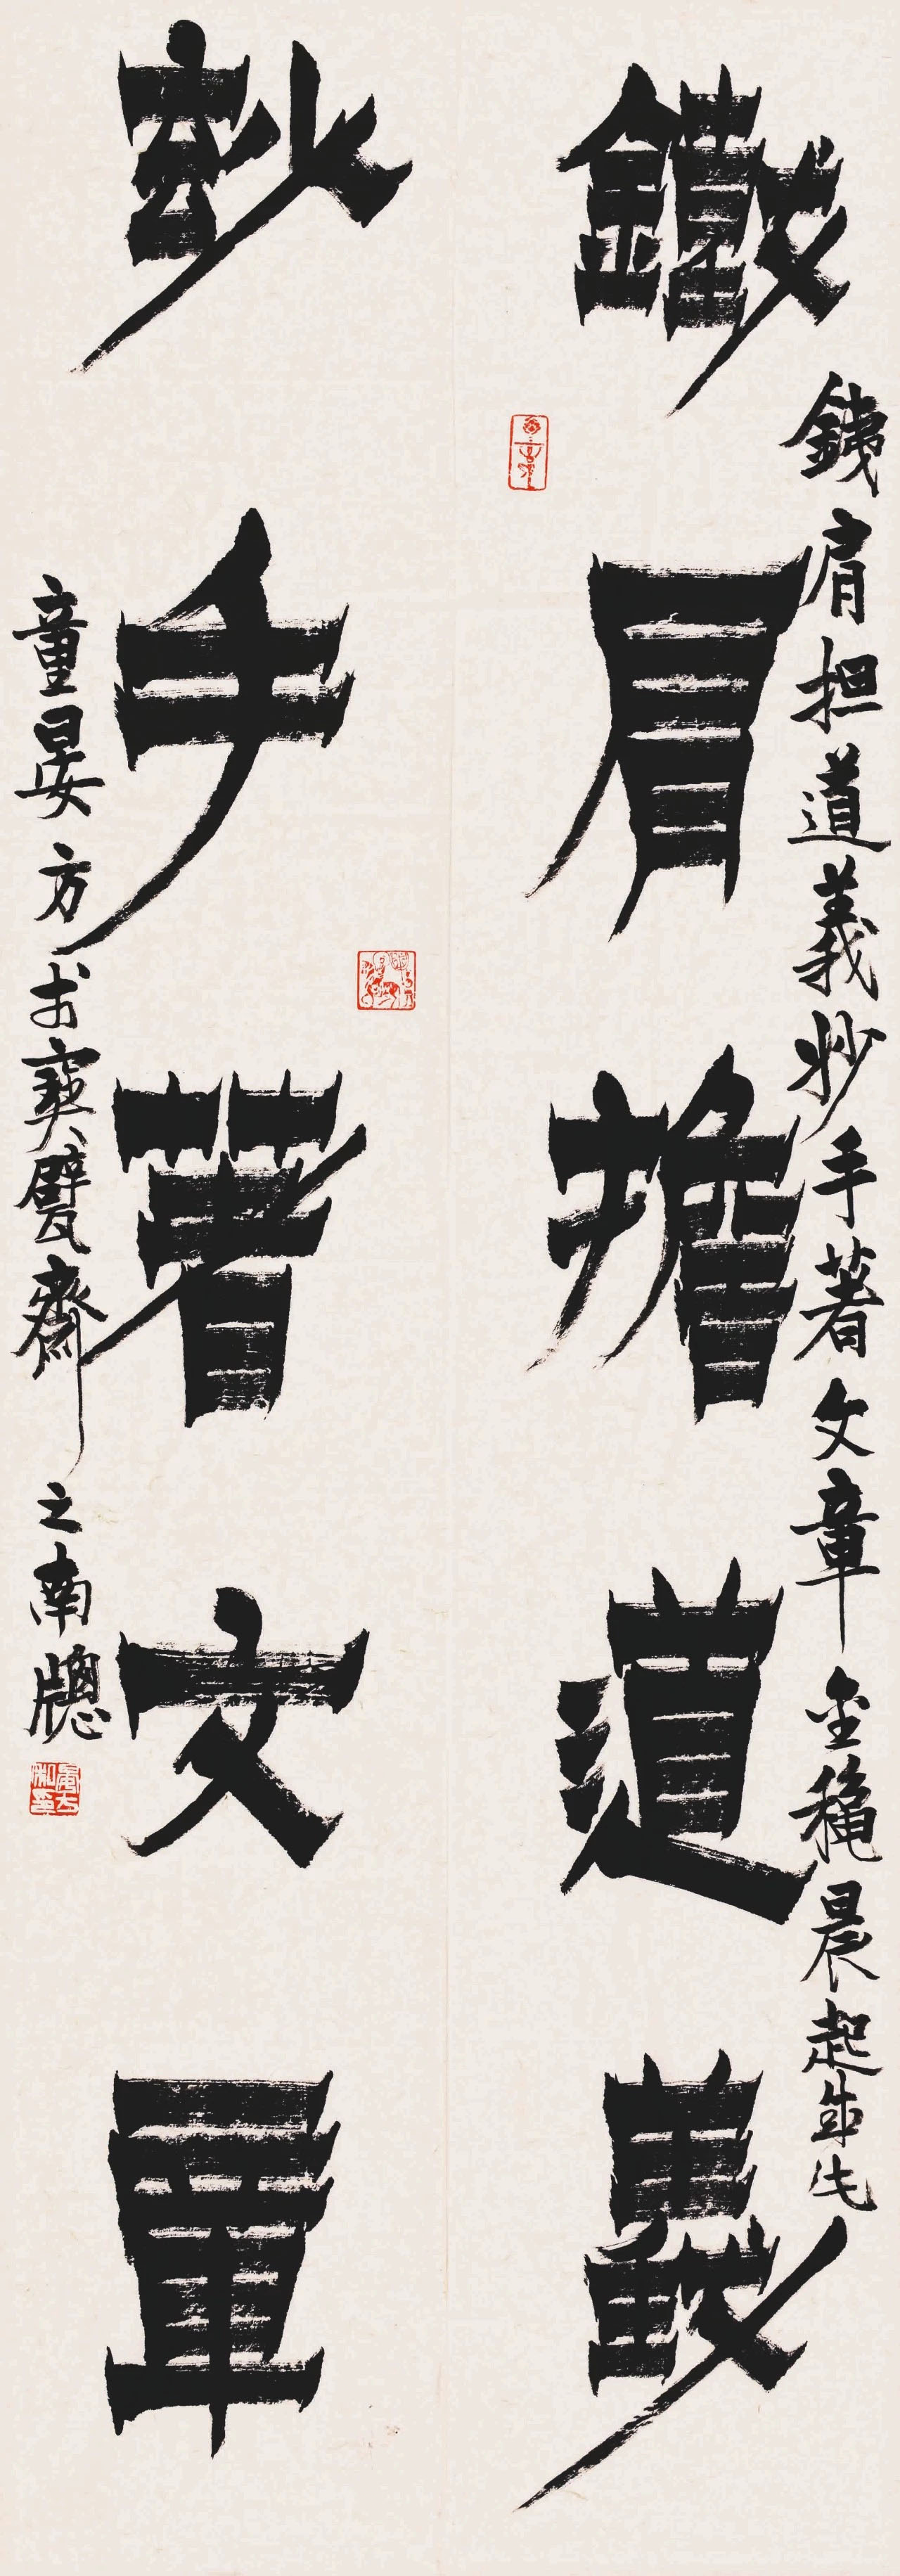 鐵肩擔道義
鐵肩担道義妙手著文章金穐晨起朱七
妙手著文章
童晏方於寶甓齋之南牕